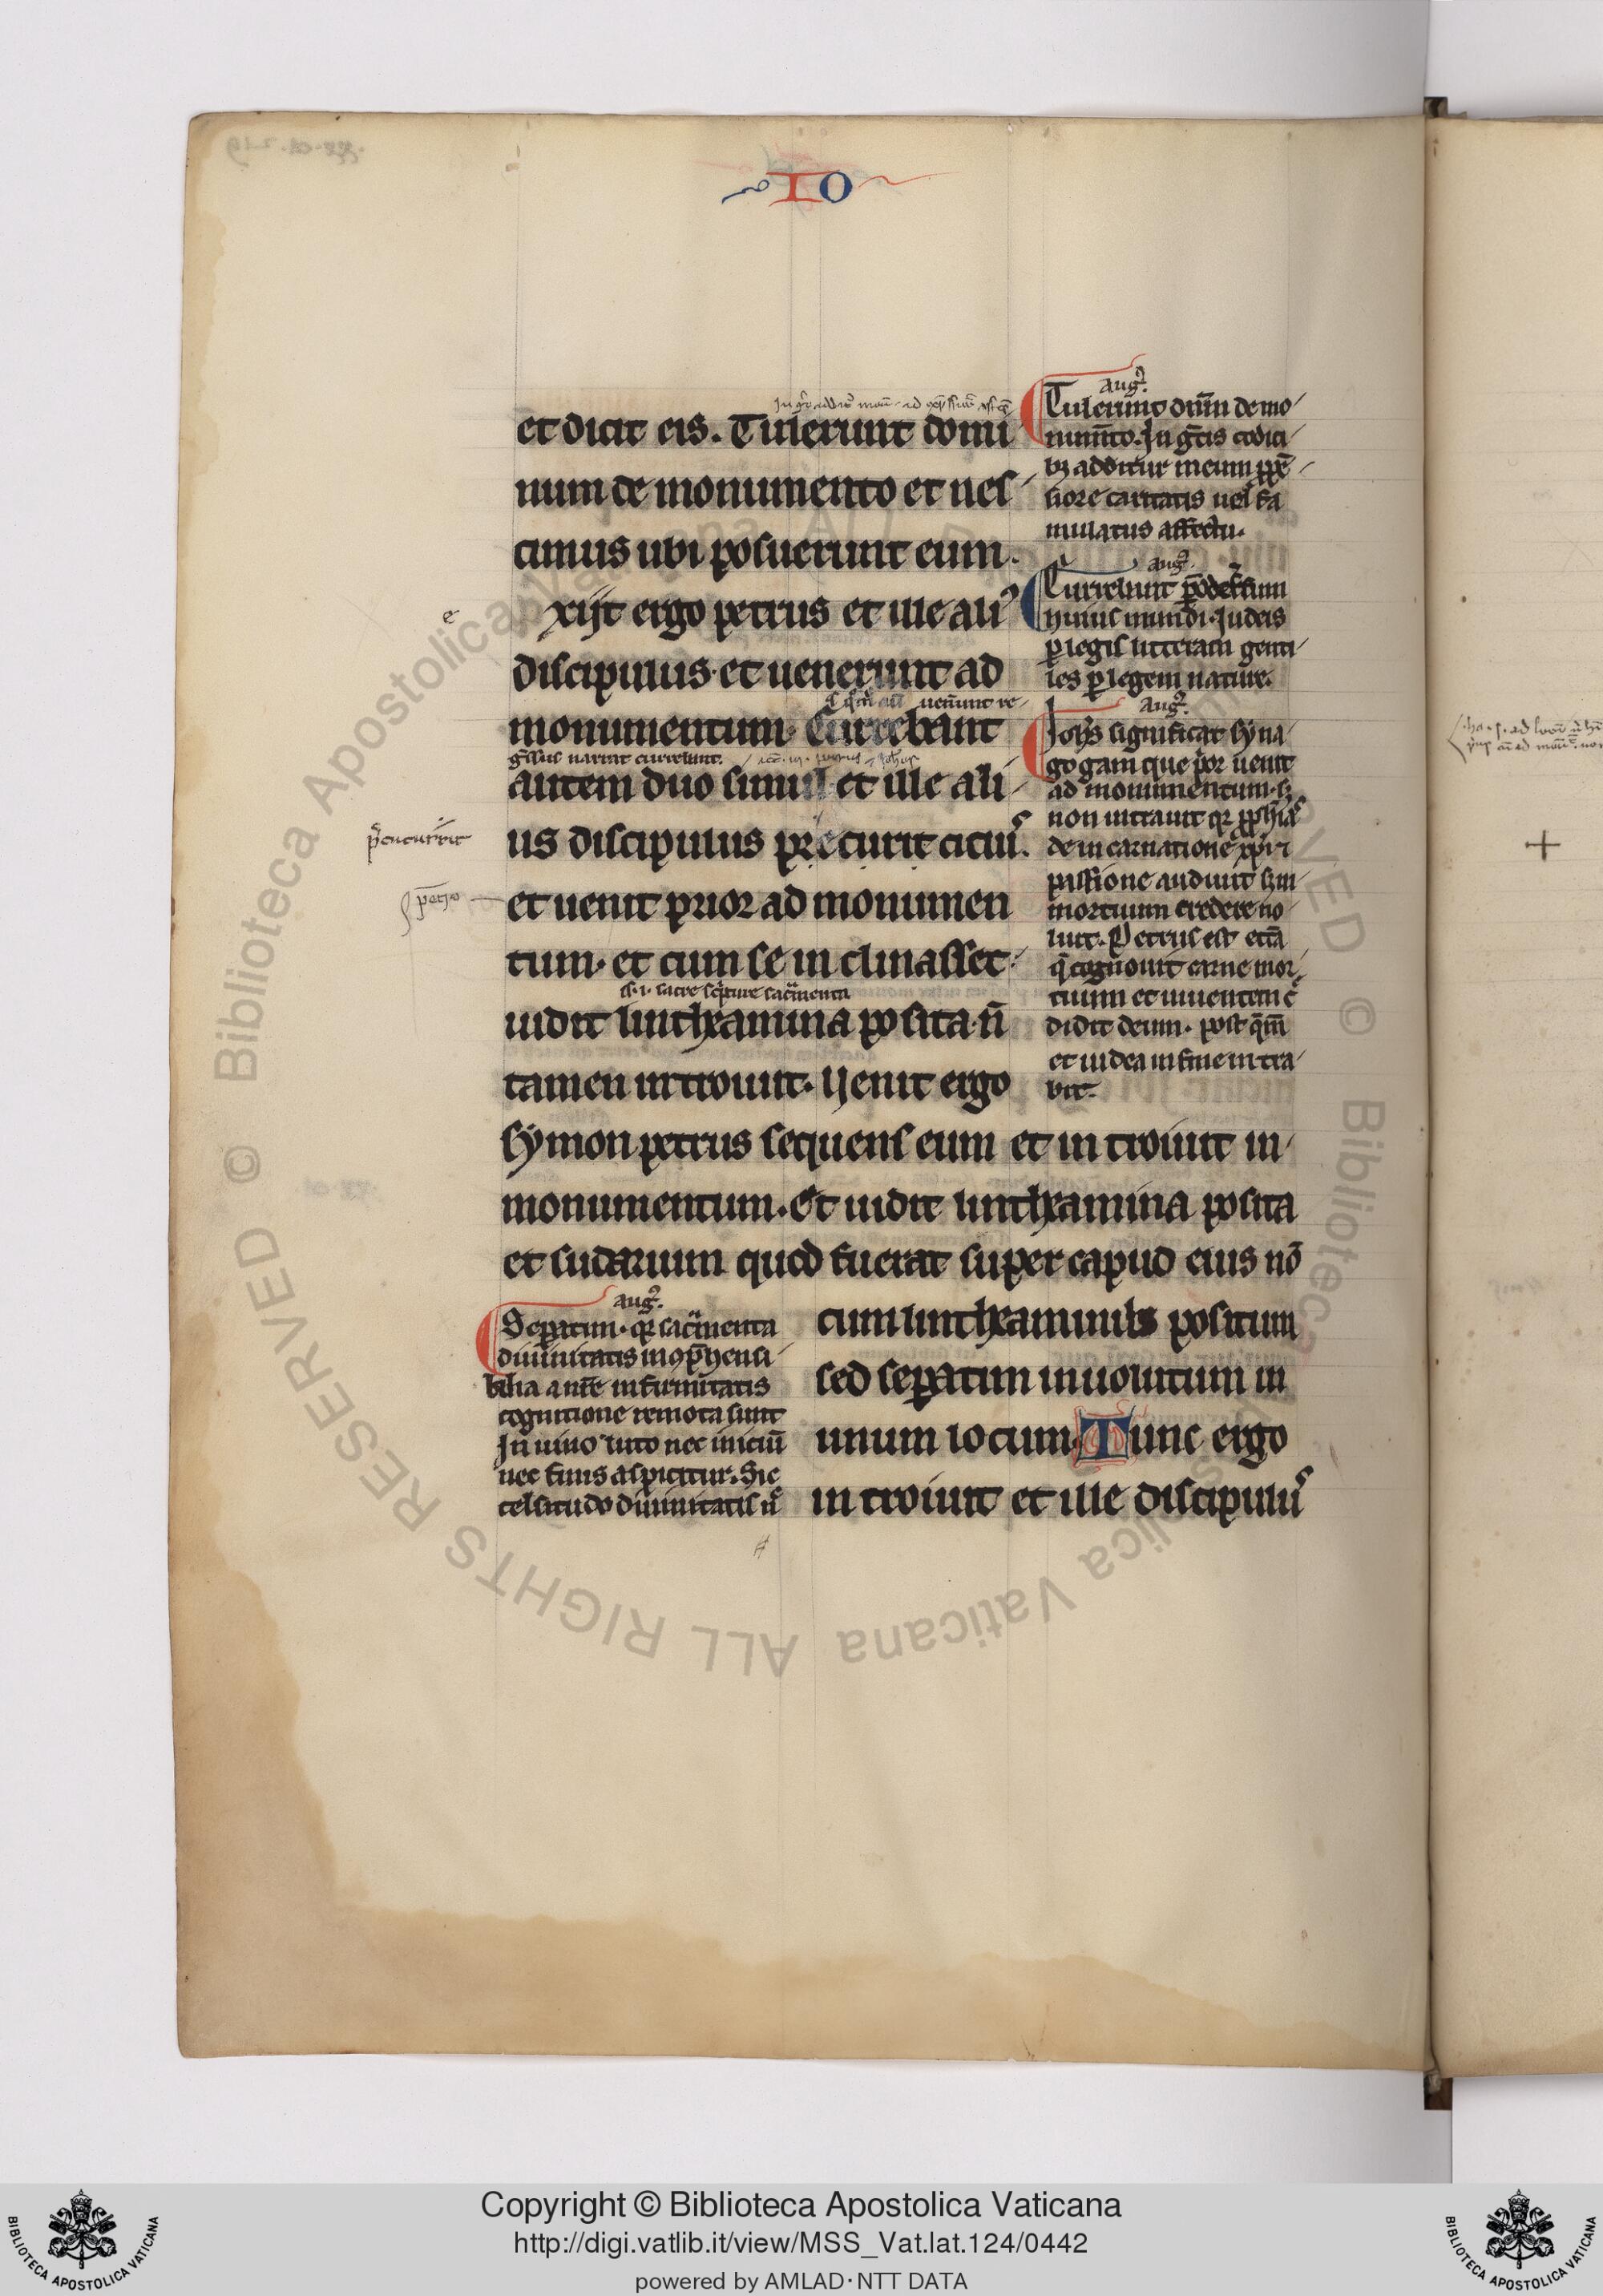 IO
et dicit eis. Tulerunt domi
num de monumento et nes
cimus ubi posuerunt eum.
e
xijt ergo petrus et ille aliꝰ
discipulus. et uenerunt ad
uen̄unt re
monumentum. Currebant
gressus narrat currebant.
autem duo simul et ille ali
us discipulus precurit citiuˢ.
p̄cucurrit
petro
et uenit prior ad monumen
tum. et cum se in clinasset.
s. i. sacre scripture sacͣmenta
uidit lintheamina posita. n̄
tamen introiuit. Uenit ergo
symon petrus sequens eum et in troiuit in
monumentum. Et uidit lintheamina posita
et sudarium quod fuerat super capud eius nō
cum lintheaminibꝫ positum
sed seꝑatim inuolutum in
unum locum. Tunc ergo
in troiuit et ille discipuluˢ
augꝰ.
Tulerunt dn̄m de mo
num̄to. In gͤcis codici
bꝫ additur meum ꝓpē
siore caritatis uel fa
mulatus affectu.
augꝰ.
Currebant
huius mundi. Iudeis
ꝑ legis litteram genti
les ꝑ legem nature.
Augꝰ.
Ioh̄s significat syna
gogam que p̓or uenit
ad monumentum. sꝫ
non intrauit qꝛ ꝓph̄iaˢ
de in carnatione xp̄i ⁊
passione audiuit sꝫ in
mortuum credere no
luit. Petrus est ecc̄a
q̄ cognouit carne mor
tuum et uiuentem c̓
didit deum. post q̄m
et iudea in fine intra
bit.
augꝰ.
Seꝑatim. qꝛ sacͣmenta
diuinitatis incōp̄hensi
bilia a nr̄e infirmitatis
cognitione remota sunt
In uino luto nec iniciū
nec finis aspicitur. Sic
celsitudo diuinitatis n̄
Copyright © Biblioteca Apostolica Vaticana
http://digi.vatlib.it/view/MSS_Vat.lat.124/0442
powered by AMLAD·NTT DATA
BIBLIOTECA APOSTOLICA VATICANA
BIBLIOTECA APOSTOLICA VATICANA
© Biblioteca Apostolica Vaticana ALL RIGHTS RESERVED